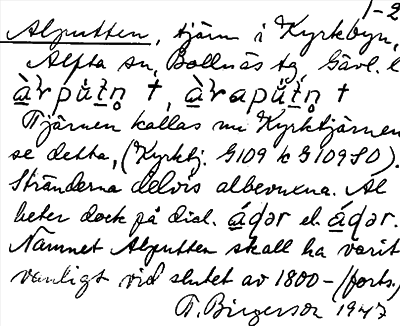 1-2
Alputten, tjärn i Kyrkbyn,
Alfta sn, Bollnäs tg, Gävl. l
à̱rpu̇̀tṉ̥ †, à̱rapu̇̀tṉ̥ †
Tjärnen kallas nu Kyrktjärnen
se detta, (Kyrktj. G109 k G109SO).
Stränderna delvis albevuxna. Al
heter dock på dial. á̱də̣r el. á̱də̣r.
Namnet Alputten skall ha varit
vanligt vid slutet av 1800- (forts.)
T. Birgerson 1947